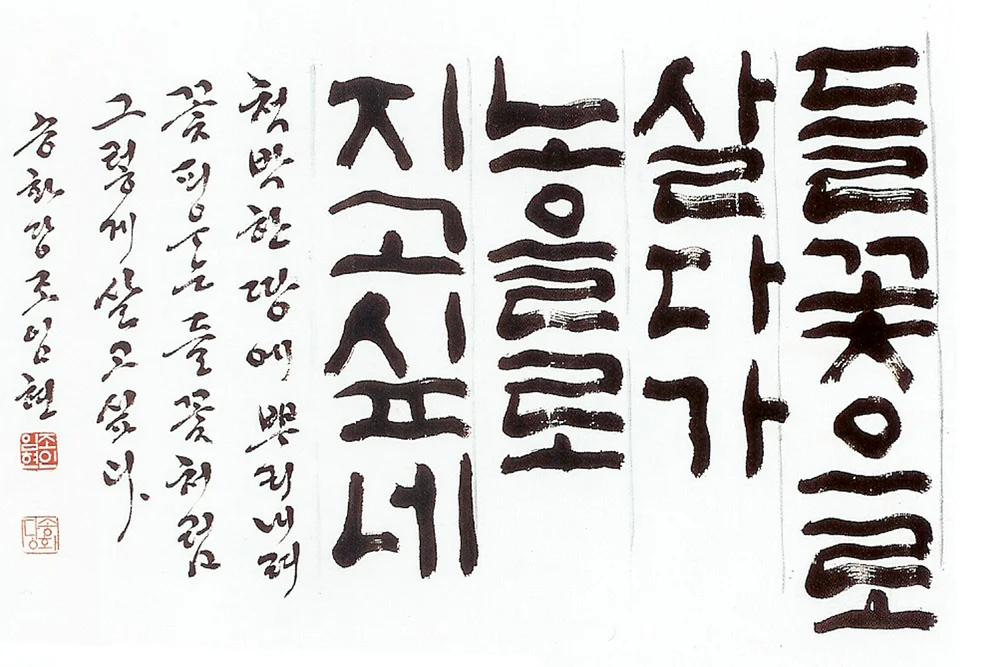 들꽃으로
살다가
노을로
지고싶네
척박한 땅에 뿌리내려
꽃 피우는 들꽃처럼
그렇게 살고 싶다.
송화당 조임현